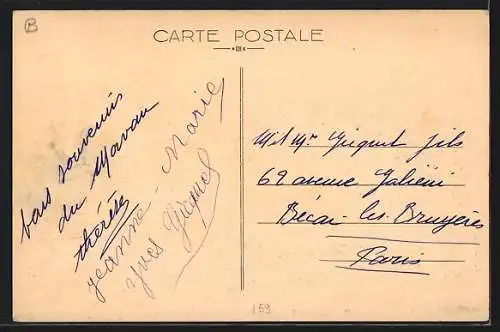 B
CARTE POSTALE
bons souvenirs
du Morvan
thérèse
jeanne - Marie
yves
M et Mme fils
62 avenue Galiéni
Bécon-les-Bruyères
Paris
159